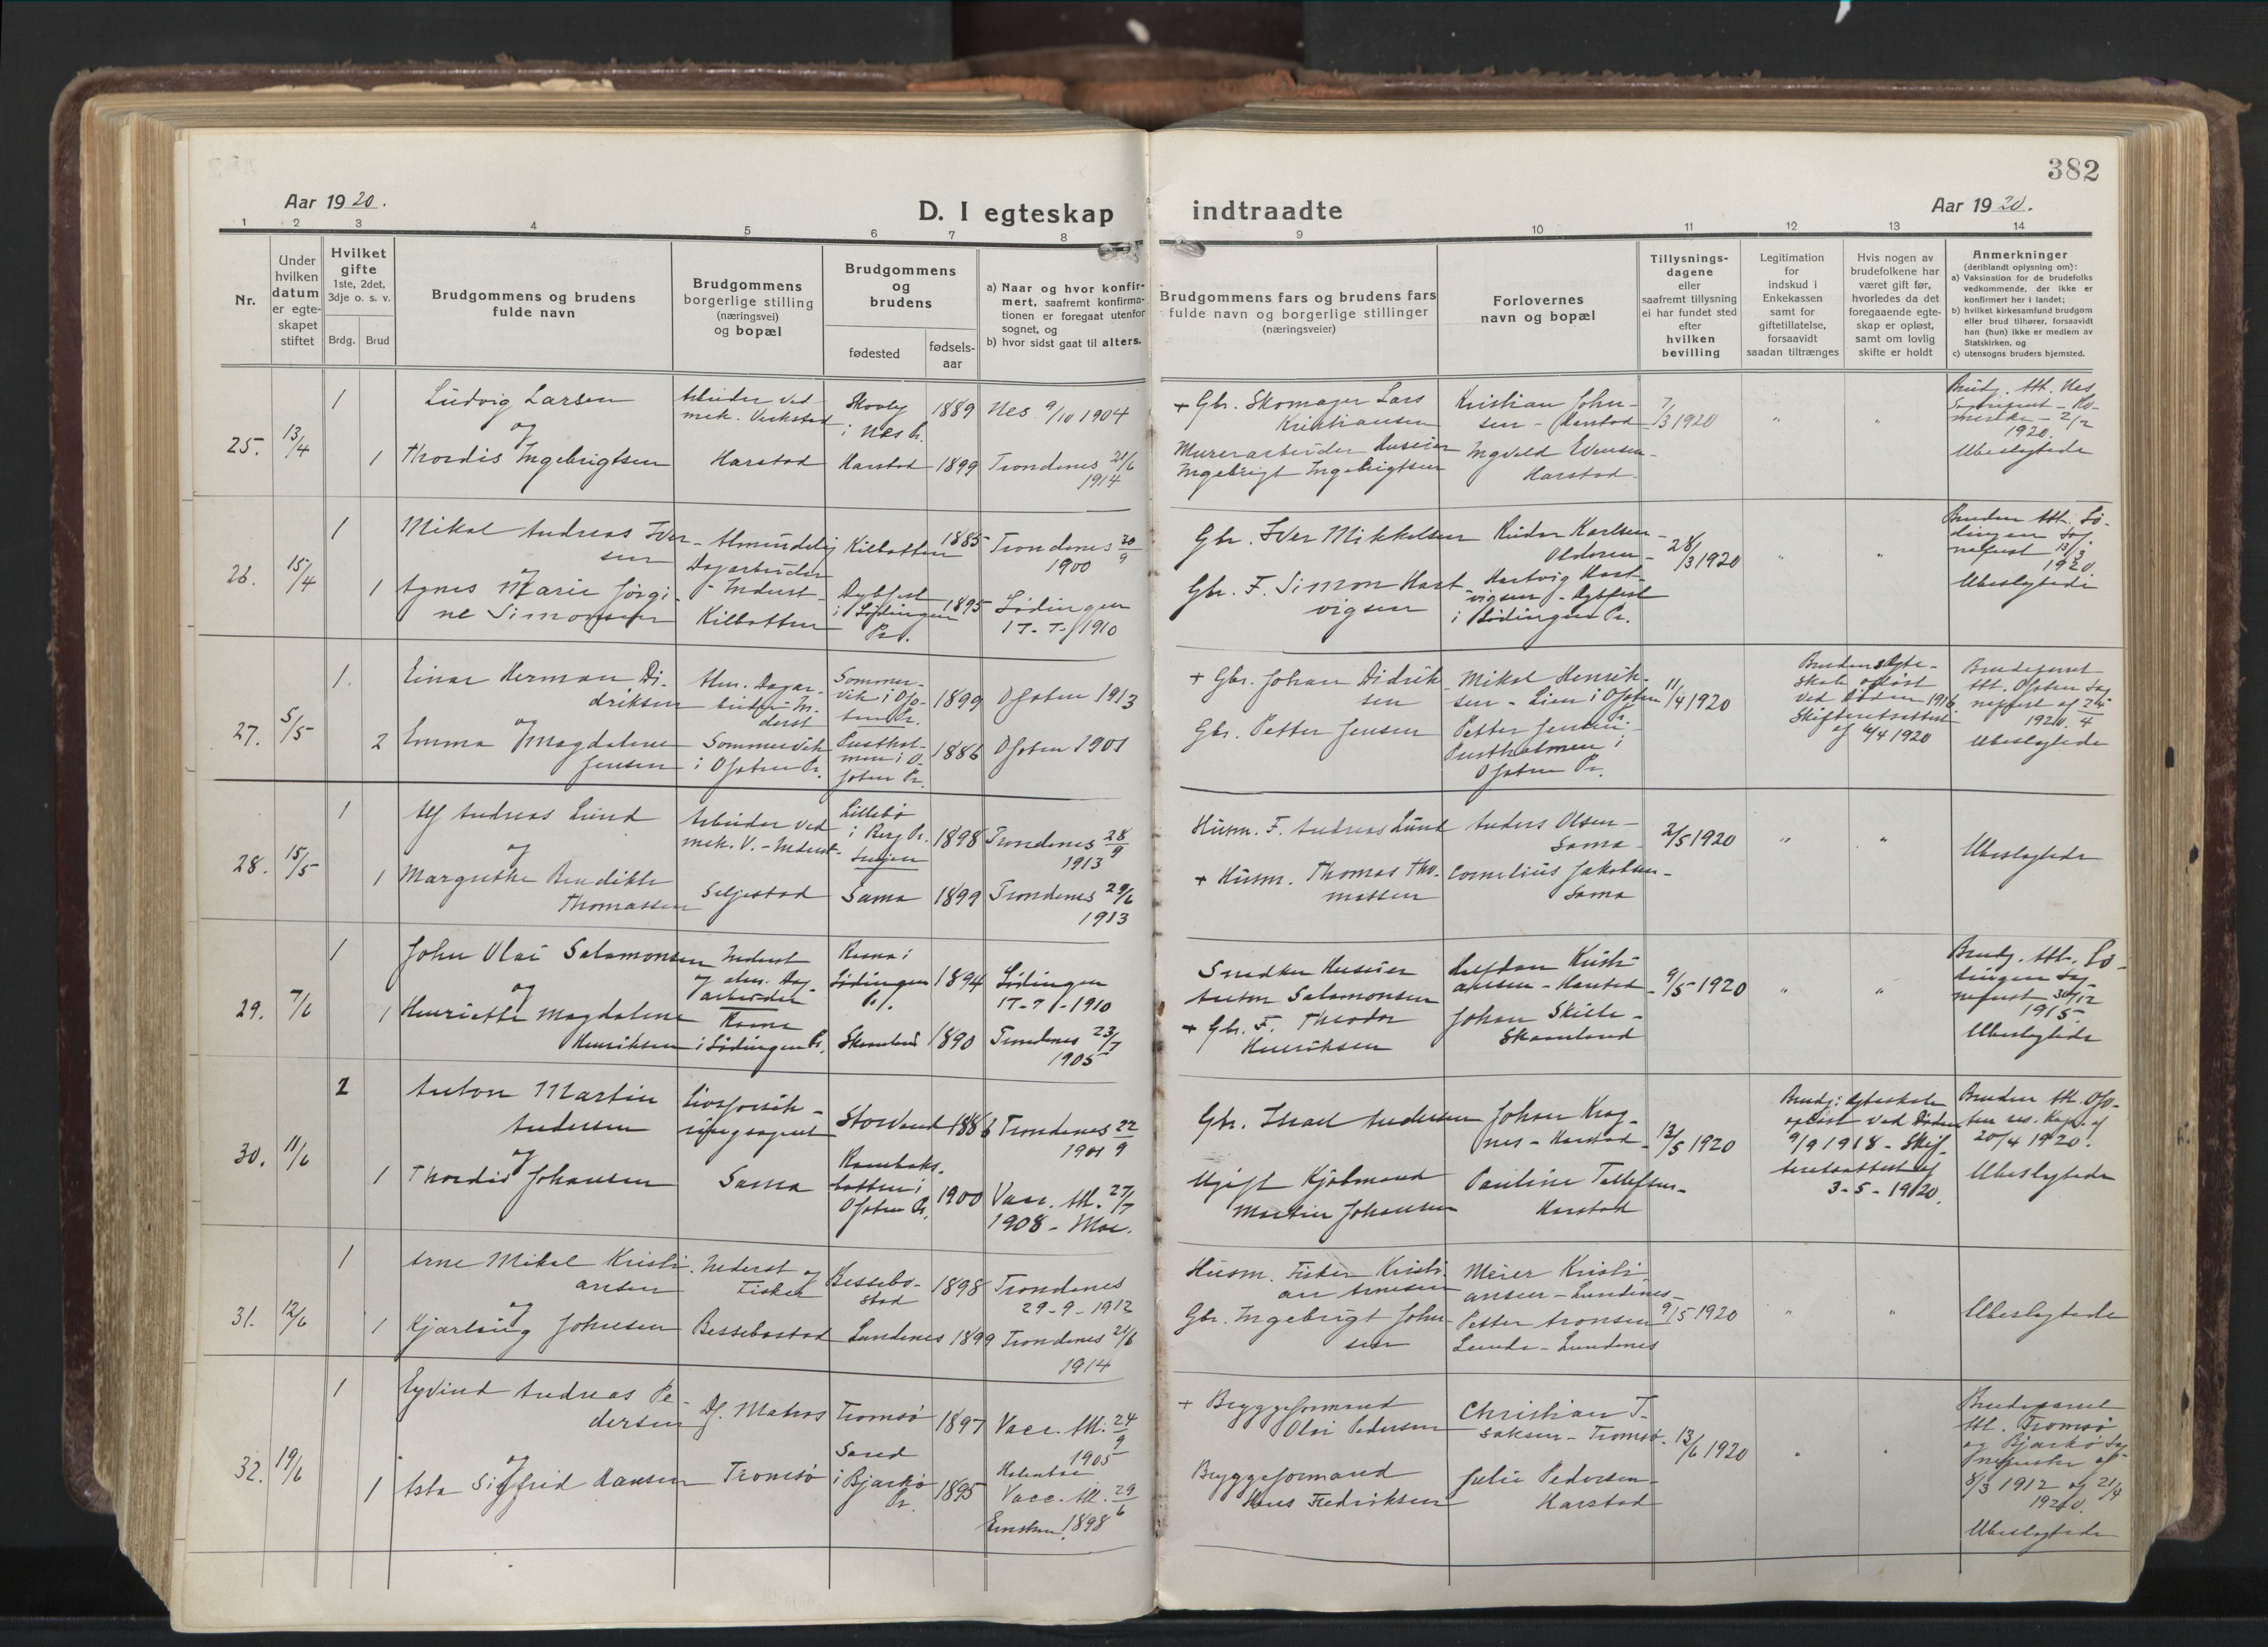 382
Aar 1920.
D. I egteskap indtraadte
Aar 1920.
1 2 3 4 5 6 7 8 9 10 11 12 13 14
Nr.
Under
hvilken
datum
er egte-
skapet
stiftet
Hvilket
gifte
1ste, 2det,
3dje o. s. v.
Brdg. Brud
Brudgommens og brudens
fulde navn
Brudgommens
borgerlige stilling
(næringsvei)
og bopæl
Brudgommens
og
brudens
fødested
fødsels-
aar
a) Naar og hvor konfir-
mert, saafremt konfirma-
tionen er foregaat utenfor
sognet, og
b) hvor sidst gaat til alters.
Brudgommens fars og brudens fars
fulde navn og borgerlige stillinger
(næringsveier)
Forlovernes
navn og bopæl
Tillysnings-
dagene
eller
saafremt tillysning
ei har fundet sted
efter
hvilken
bevilling
Legitimation
for
indskud i
Enkekassen
samt for
giftetillatelse,
forsaavidt
saadan tiltrænges
Hvis nogen av
brudefolkene har
været gift før,
hvorledes da det
foregaaende egte-
skap er opløst,
samt om lovlig
skifte er holdt
Anmerkninger
(deriblandt oplysning om):
a) Vaksination for de brudefolks
vedkommende, der ikke er
konfirmert her i landet;
b) hvilket kirkesamfund brudgom
eller brud tilhører, forsaavidt
han (hun) ikke er medlem av
Statskirken, og
c) utensogns bruders hjemsted.
25. 13/4
1 Ludvig Larsen
og
1 Thordis Ingebrigtsen
Arbeider ved
mek. Verksted
Harstad
Skovly
i Nes Pr.
1889
Nes 9/10 1904
Harstad 1899 Trondenes 21/6
1914
+ Gbr. Skomager Lars
Kristiansen
Murerarbeider Huseier
Ingebrigt Ingebrigtsen
Kristian John-
sen - Harstad
Ingvald Evensen -
Harstad
7/3 1920
" "
Brudg. Att. Nes
1920.
Ubeslegtede
26. 15/4
1 Mikal Andreas Iver-
sen
og
1 Agnes Marie Jørgi-
ne Simonsen
Almindelig
Dagarbeider
- Inderst -
Kilbotten
Kilbotten 1885 Trondenes 30/9
1900
i Lødingen
Pr.
1895
Lødingen
17-7-1910
Gbr. Iver Mikkelsen
Gbr. F. Simon Hart-
vigsen
Karlsen -
Hartvig Hart-
vigsen -
i Lødingen Pr.
28/3 1920
" "
Bruden Att. Lø-
dingen Sog-
nepræst 13/3
1920
Ubeslegtede
27. 5/5
1. Einar Herman Di-
driksen
og
2 Emma Magdalene
Jensen
Alm. Dagar-
beider In-
derst
Sommervik
i Ofoten Pr.
Sommer-
vik i Ofo-
ten Pr.
1899
Ofoten 1913
men i O-
foten Pr.
1886 Ofoten 1901
+ Gbr. Johan Didrik-
sen
Gbr. Petter Jensen
Mikal Henrik-
sen - Lien i Ofoten
Pr.
Petter Jensen
i
Ofoten Pr.
11/4 1920
Brudens Egte-
skab opløst
ved Døden 1916
Skifteretsattest
af 6/4 1920
Brudeparret
Att. Ofoten Sog-
nepræst af 24/4
1920.
Ubeslegtede
28. 15/5
1 Alf Andreas Lund
og
1 Margrethe Benedikte
Thomassen
Arbeider ved
mek. V. - Inderst -
Seljestad
Lillebø
i Berg Pr.
Senjen
1898
Trondenes 28/9
1913
Sama 1899 Trondenes 29/6
1913
Husm. F. Andreas Lund
+ Husm. Thomas Tho-
massen
Anders Olsen -
Sama
Cornelius Jakobsen -
Sama
2/5 1920
" "
Ubeslegtede
29. 7/6
1 John Olai Salamonsen
og
1 Henriette Magdalene
Henriksen
Inderst
og alm. Dag-
arbeider
i Lødingen Pr.
Lødingen
Pr.
1894
Lødingen
17-7-1910
1890 Trondenes 23/7
1905
Snedker Huseier
Anton Salamonsen
+ Gbr. F. Theodor
Henriksen
Halfdan Kristi-
ansen - Harstad -
Johan Skille -
9/5 1920
" "
Brudg. Att. Lø-
dingen Sog-
nepræst 30/12
1915
Ubeslegtede
30. 11/6
2 Anton Martin
Andersen
og
1 Thordis Johansen
Livsforsik-
ringsagent
Sama
1886 Trondenes 22/9
1901
i
Ofoten Pr.
1900 Vacc. Att. 27/7
1908 -
Gbr. Israel Andersen
Ugift Kjøbmand
Martin Johansen
Johan Krog-
nes - Harstad -
Pauline Tollefsen -
Harstad
12/5 1920
Brudg: Egteskab
opløst ved Døden
9/9 1918 - Skif-
teretsattest af
3-5-1920.
Bruden Att. Ofo-
ten res. Kap. af
20/4 1920.
Ubeslegtede
31. 12/6
1 Arne Mikal Kristi-
ansen
og
1 Kjærlaug Johnsen
Inderst og
Fisker
Bessebostad
Bessebo-
stad
1898
Trondenes
29-9-1912
Lundenes 1899 Trondenes 21/6
1914
Husm. Fisker Kristi-
an Arnesen
Gbr. Ingebrigt John-
sen
Meier Kristi-
ansen - Lundenes -
Petter Aronsen
Lunde - Lundenes
9/5 1920
" "
Ubeslegtede
32. 19/6
1 Eyvind Andreas Pe-
dersen
og
1 Asta Sigfrid Hansen
Matros
Tromsø
Tromsø 1897 Vacc. Att. 24/9
1905
Sand
i Bjarkø
Pr.
1895
Vacc. Att. 29/6
1898
+ Bryggeformand
Olai Pedersen
Bryggeformand
Hans Fredriksen
Christian I-
saksen - Tromsø -
Julie Pedersen -
Harstad
13/6 1920
" "
Brudeparret
Att. Tromsø
og Bjarkø Sog-
nepræster af
8/3 1912 og 21/4
1920.
Ubeslegtede